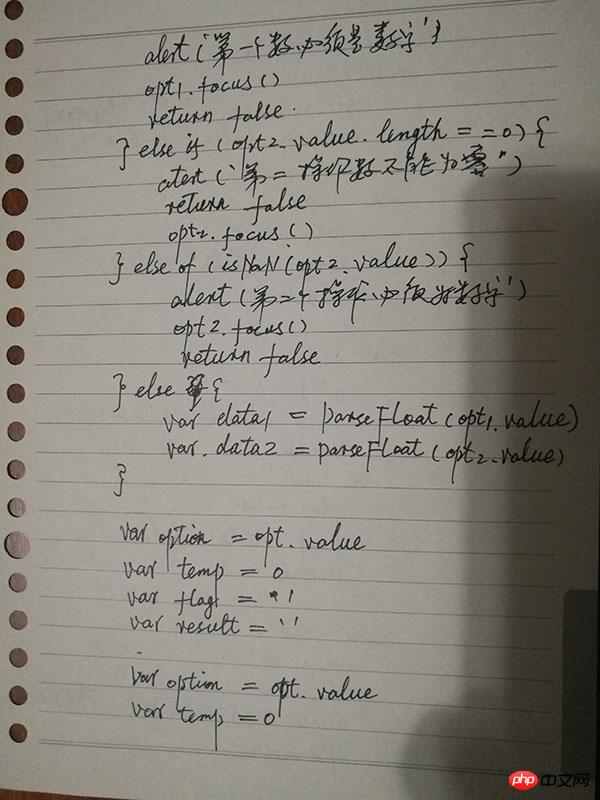 alert('第一个数必须是数字')
opt1.focus()
return false.
} else if (opt2.value.length == 0) {
alert('第二操作数不能为零")
return false
opt2.focus()
} else of (isNaN(opt2.value)) {
alert(第二个操作必须为数字')
opt2.focus()
return false
} else {
var data1 = parseFloat(opt1.value)
var.data2 = parseFloat(opt2.value)
}
var option = opt.value
var temp = 0
var flag1 = ''
var result = ''
var option = opt.value
var temp = 0
php 中文网